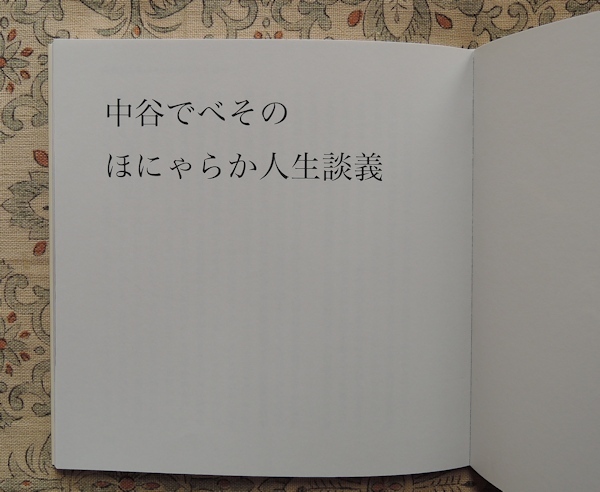 中谷でべその
ほにゃらか人生談義